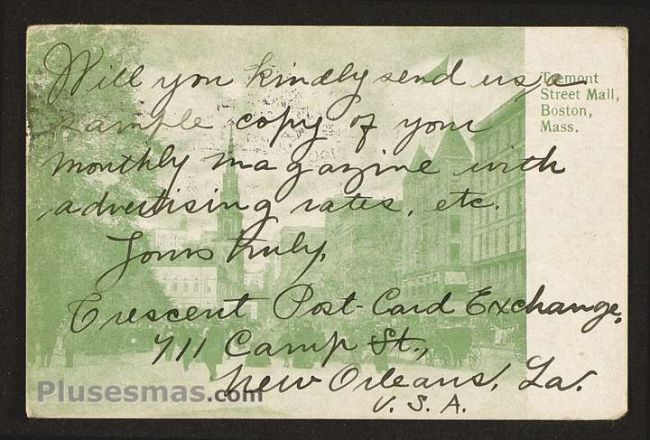 Will you kindly send us a
sample copy of your
monthly magazine with
advertising rates, etc.
Yours truly,
Crescent Post-Card Exchange,
711 Camp St.,
New Orleans, La.
U.S.A.
Tremont
Street Mall,
Boston,
Mass.
Plusesmas.com